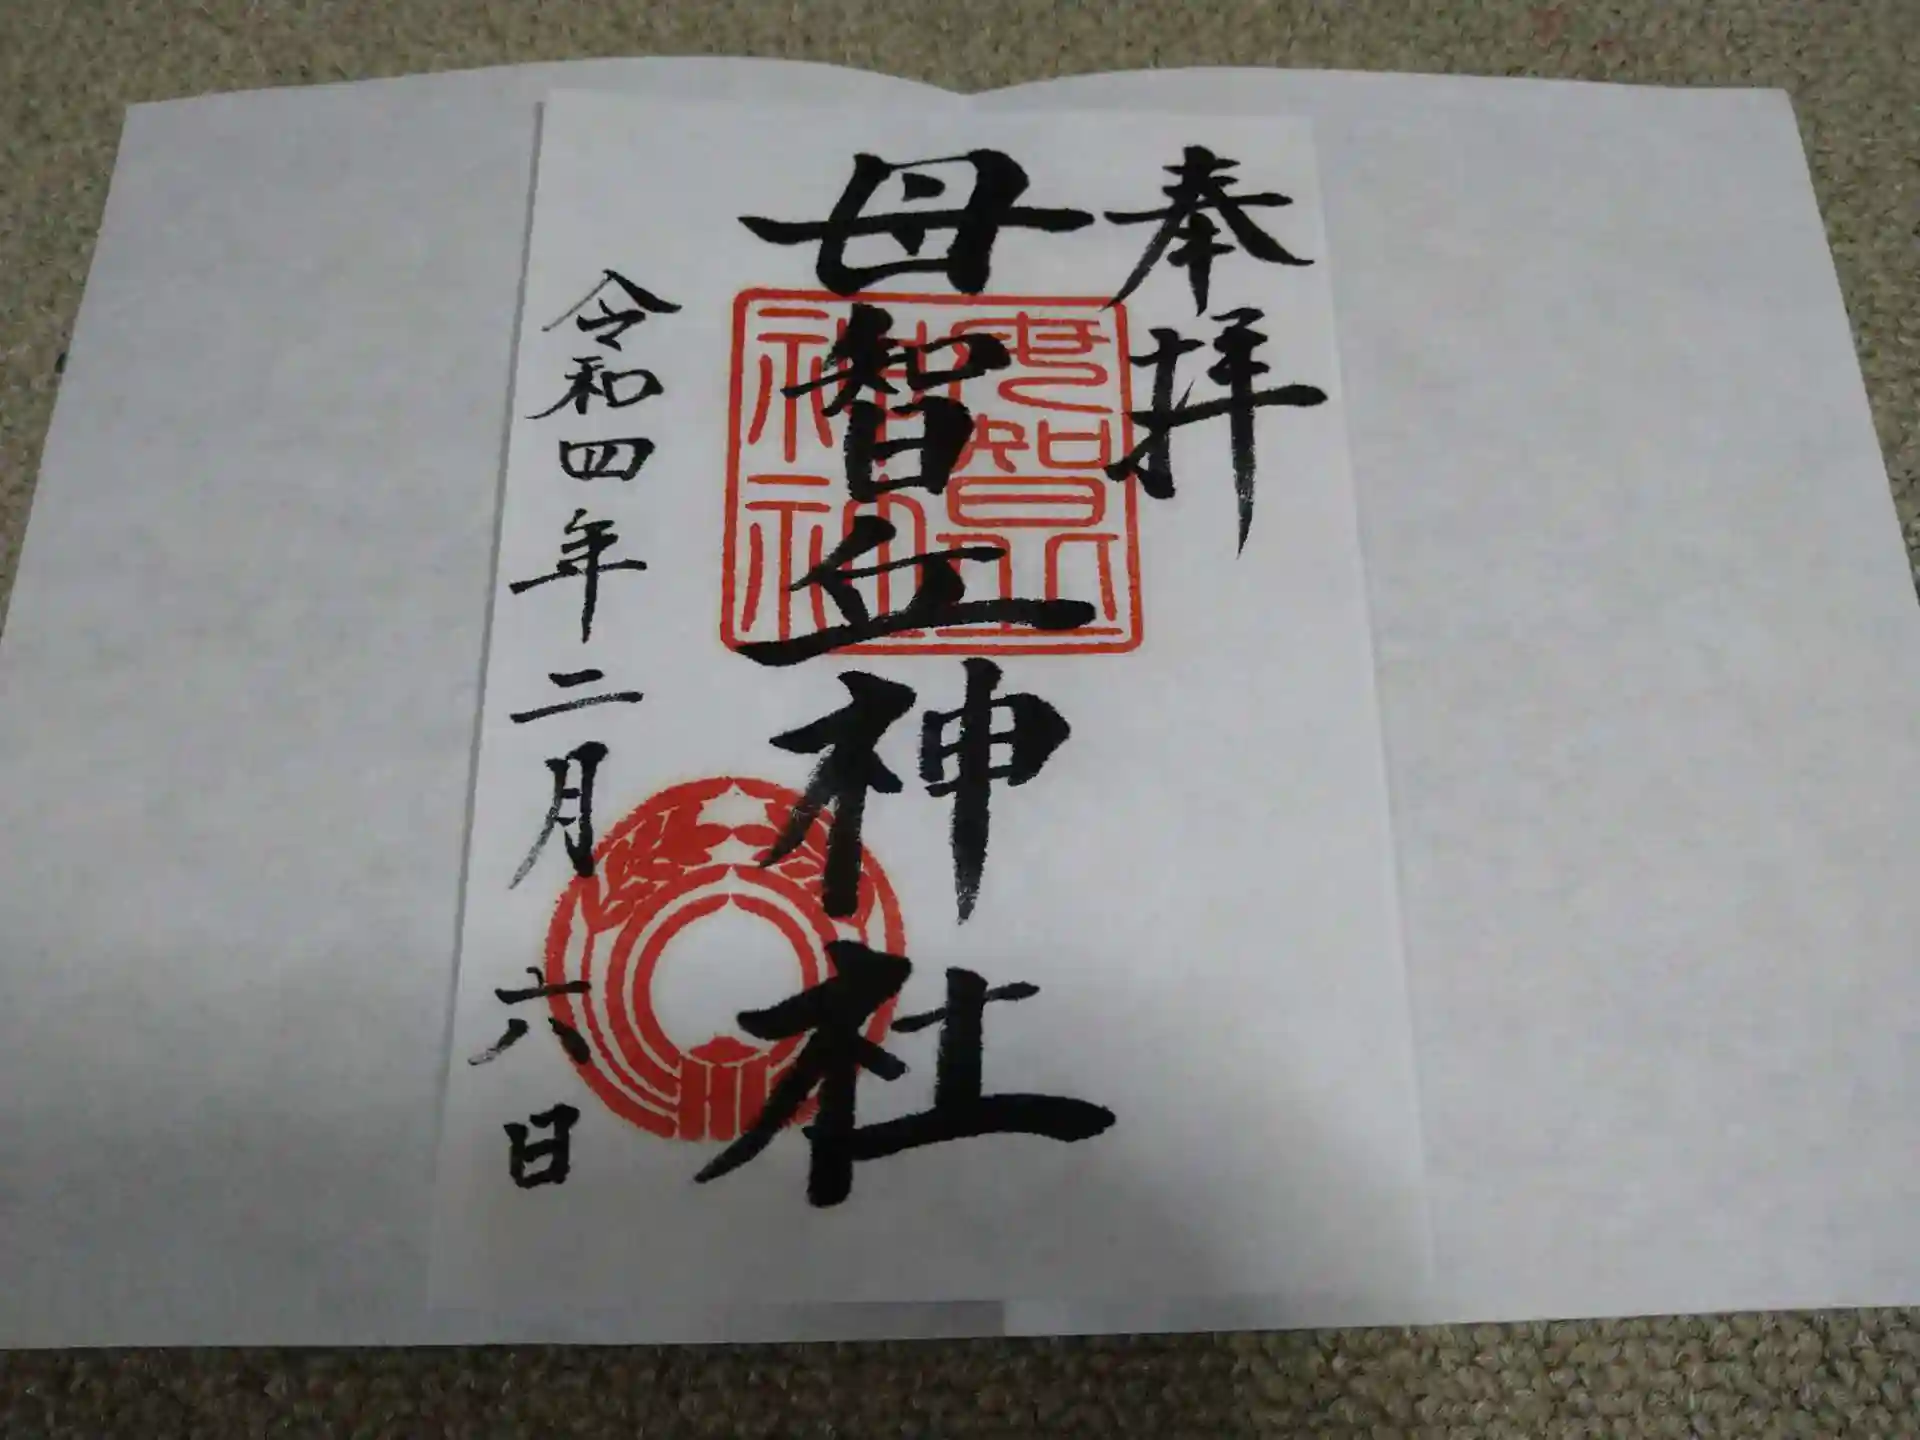 奉拝
母智丘神社
母智丘神社
令和四年二月六日